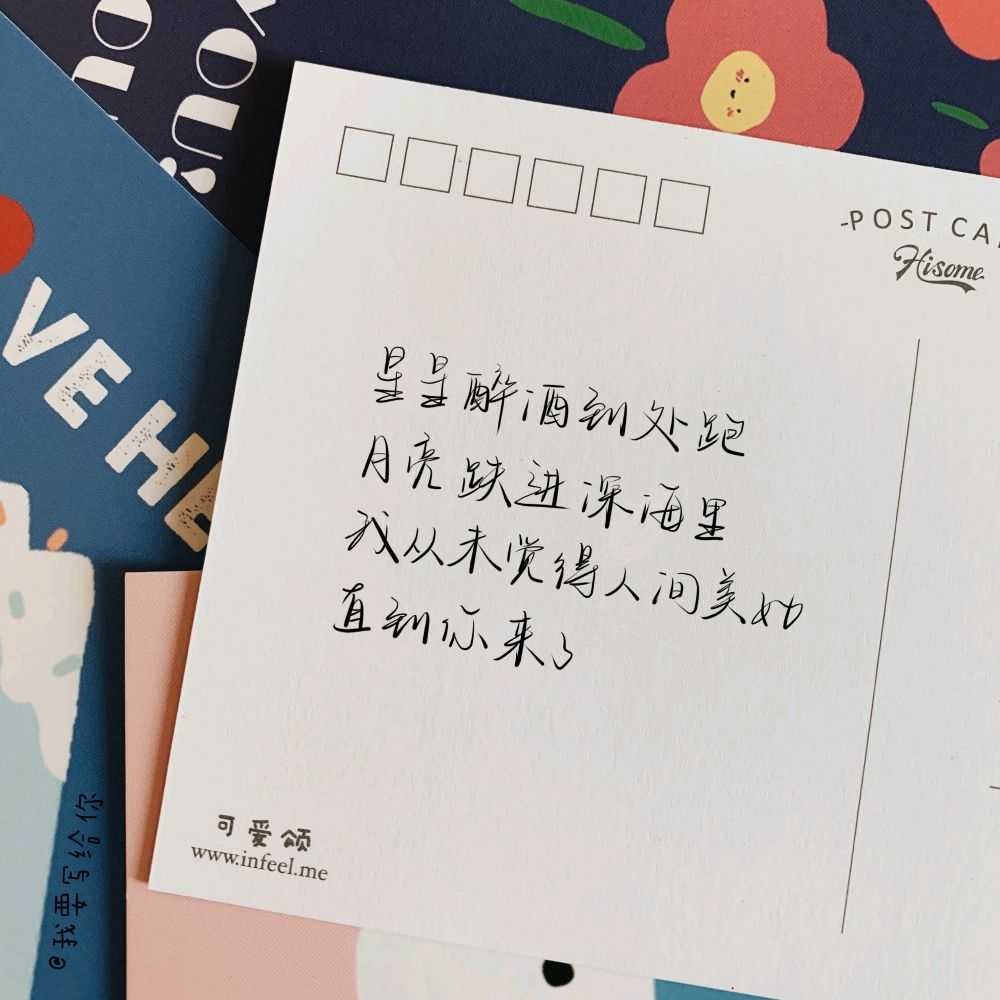 YOU!
YOU
VE HE
-POST CA
Hisome
星星醉酒到处跑
月亮跌进深海里
我从未觉得人间美好
直到你来了
可爱颂
www.infeel.me
@我要写给你